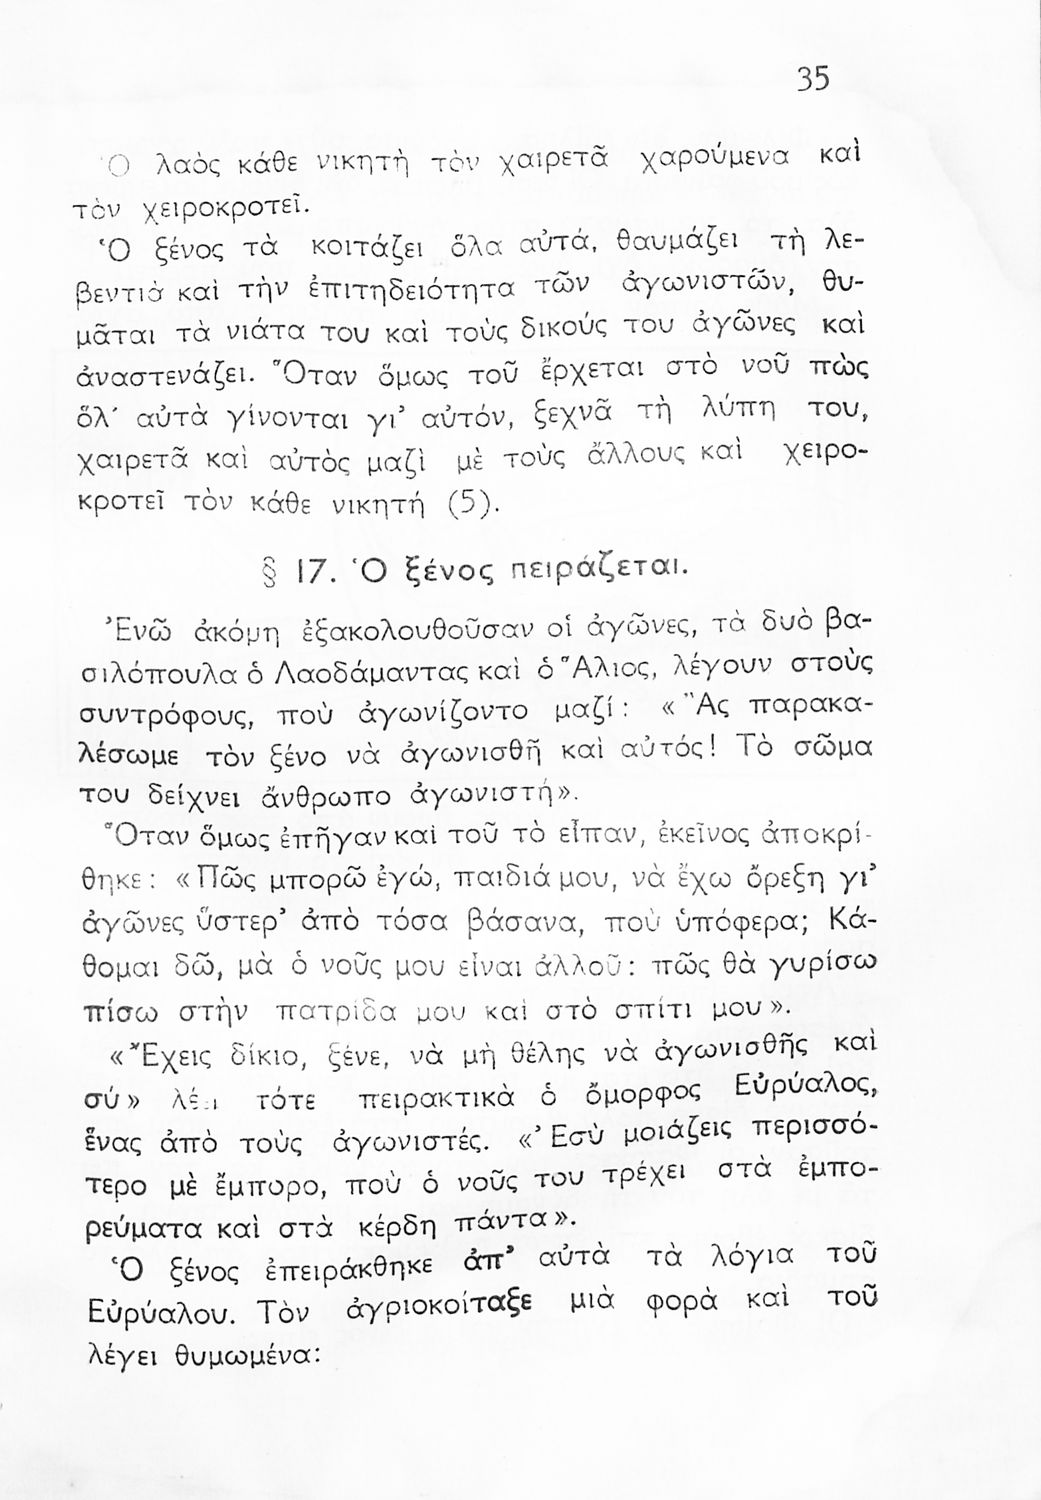 35
Ὁ λαὸς κάθε νικητὴ τὸν χαιρετᾶ χαρούμενα καὶ
τὸν χειροκροτεῖ.
Ὁ ξένος τὰ κοιτάζει ὅλα αὐτά, θαυμάζει τὴ λε-
βεντιὰ καὶ τὴν ἐπιτηδειότητα τῶν ἀγωνιστῶν, θυ-
μᾶται τὰ νιάτα του καὶ τοὺς δικούς του ἀγῶνες καὶ
ἀναστενάζει. Ὅταν ὅμως τοῦ ἔρχεται στὸ νοῦ πὼς
ὅλ' αὐτὰ γίνονται γι' αὐτόν, ξεχνᾶ τὴ λύπη του,
χαιρετᾶ καὶ αὐτὸς μαζὶ μὲ τοὺς ἄλλους καὶ χειρο-
κροτεῖ τὸν κάθε νικητή (5).
§ 17. Ὁ ξένος πειράζεται.
Ἐνῶ ἀκόμη ἐξακολουθοῦσαν οἱ ἀγῶνες, τὰ δυὸ βα-
σιλόπουλα ὁ Λαοδάμαντας καὶ ὁ Ἅλιος, λέγουν στοὺς
συντρόφους, ποὺ ἀγωνίζοντο μαζί: «Ἂς παρακα-
λέσωμε τὸν ξένο νὰ ἀγωνισθῆ καὶ αὐτός! Τὸ σῶμα
του δείχνει ἄνθρωπο ἀγωνιστή».
Ὅταν ὅμως ἐπῆγαν καὶ τοῦ τὸ εἶπαν, ἐκεῖνος ἀποκρί-
θηκε: «Πῶς μπορῶ ἐγώ, παιδιά μου, νὰ ἔχω ὄρεξη γι'
ἀγῶνες ὕστερ' ἀπὸ τόσα βάσανα, ποὺ ὑπόφερα; Κά-
θομαι δῶ, μὰ ὁ νοῦς μου εἶναι ἀλλοῦ: πῶς θὰ γυρίσω
πίσω στὴν πατρίδα μου καὶ στὸ σπίτι μου».
«Ἔχεις δίκιο, ξένε, νὰ μὴ θέλης νὰ ἀγωνισθῆς καὶ
σύ» λέει τότε πειρακτικὰ ὁ ὄμορφος Εὐρύαλος,
ἕνας ἀπὸ τοὺς ἀγωνιστές. «Ἐσὺ μοιάζεις περισσό-
τερο μὲ ἔμπορο, ποὺ ὁ νοῦς του τρέχει στὰ ἐμπο-
ρεύματα καὶ στὰ κέρδη πάντα».
Ὁ ξένος ἐπειράκθηκε ἀπ' αὐτὰ τὰ λόγια τοῦ
Εὐρύαλου. Τὸν ἀγριοκοίταξε μιὰ φορὰ καὶ τοῦ
λέγει θυμωμένα: